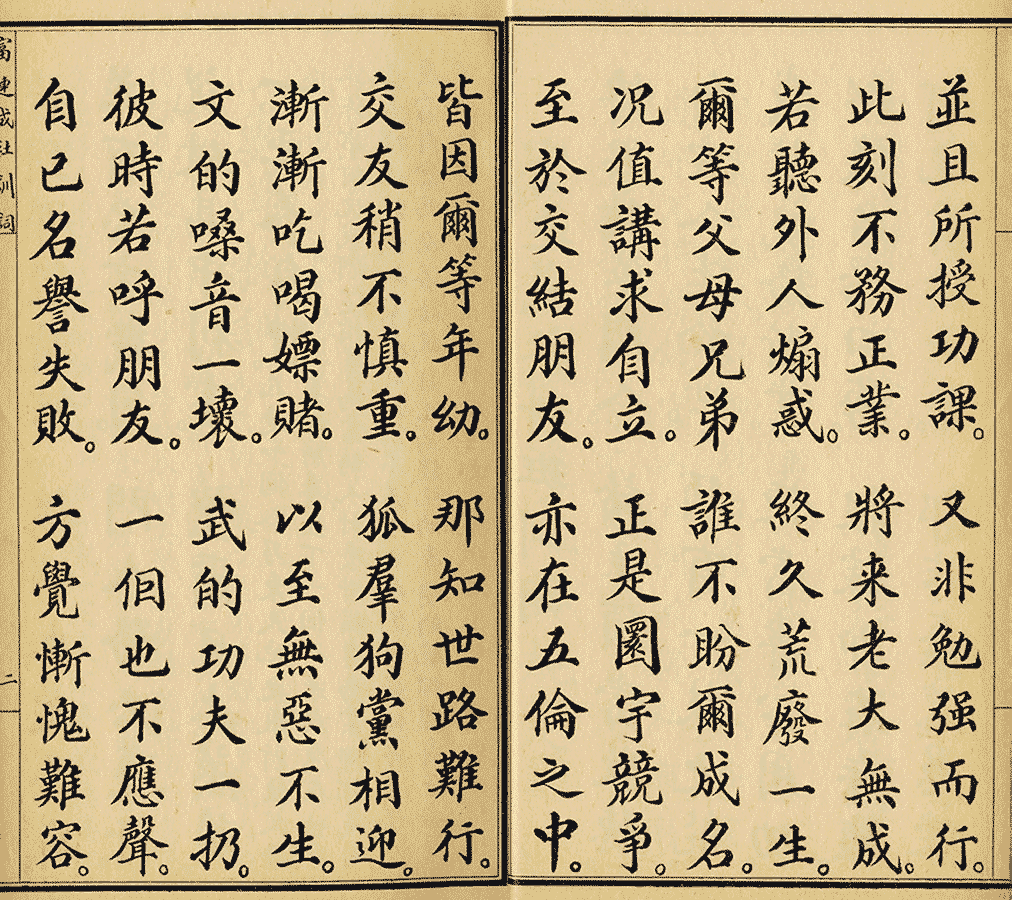 並且所授功課。又非勉强而行。
此刻不務正業。將来老大無成。
若聽外人煽惑。終久荒廢一生。
爾等父母兄弟誰不盼爾成名。
况值講求自立。正是圜宇競爭。
至於交結朋友。亦在五倫之中。
皆因爾等年幼。那知世路難行。
交友稍不慎重。狐羣狗黨相迎。
漸漸吃喝嫖賭。以至無惡不生。
文的嗓音一壞。武的功夫一扔。
彼時若呼朋友。一個也不應聲。
自己名譽失敗。方覺慚愧難容。
富連成社訓詞
二